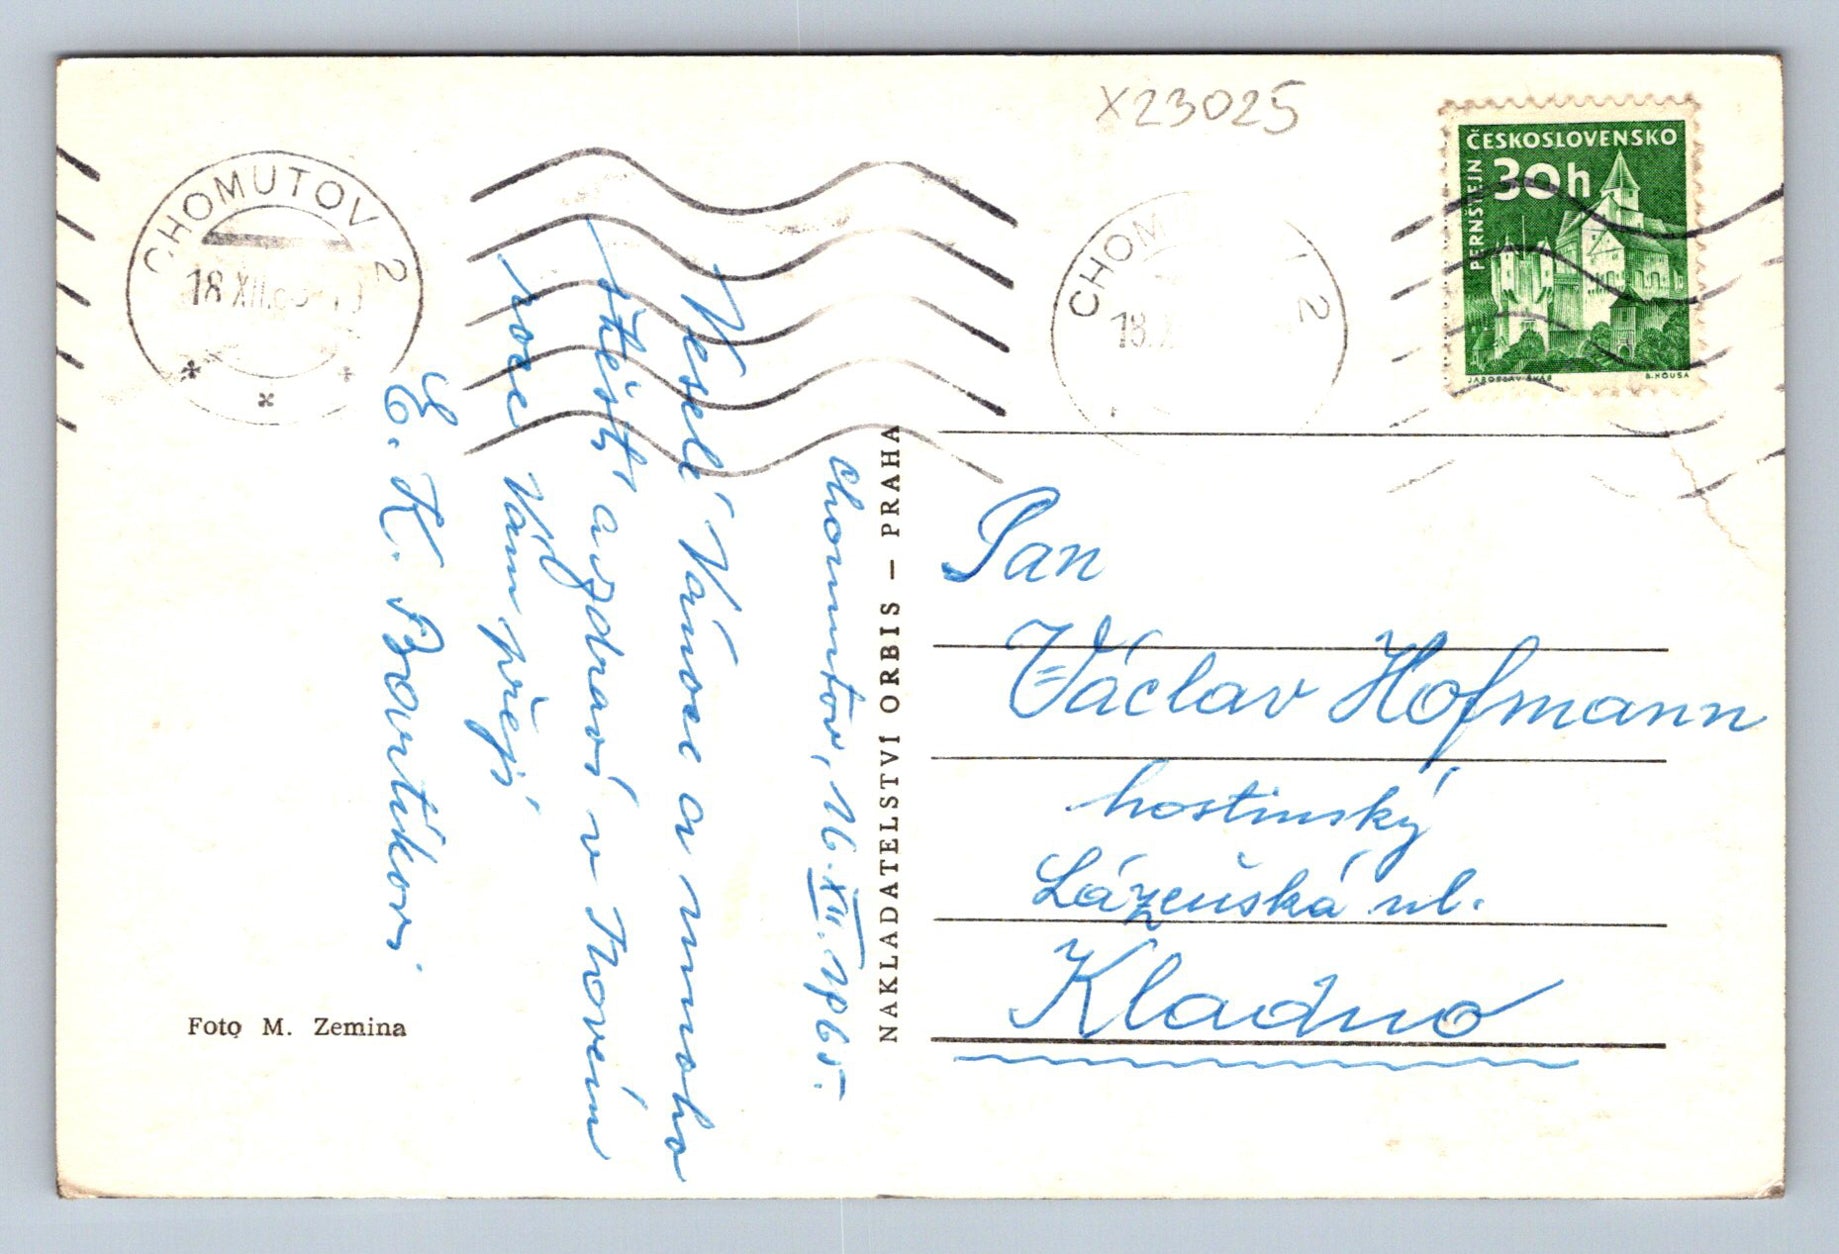 X23025
CHOMUTOV 2
18.XII.
CHOM 2
18.X
ČESKOSLOVENSKO
30h
PERNŠTEJN
JAROSLAV ŠVÁB
B. HOUSA
Chomutov, 16.XII.1965.
Veselé Vánoce a mnoho
štěstí a zdraví v Novém
roce Vám přejí
E. K. Bartíkovi
Foto M. Zemina
NAKLADATELSTVÍ ORBIS – PRAHA
Pan
Václav Hofmann
hostinský
Lázeňská ul.
Kladno